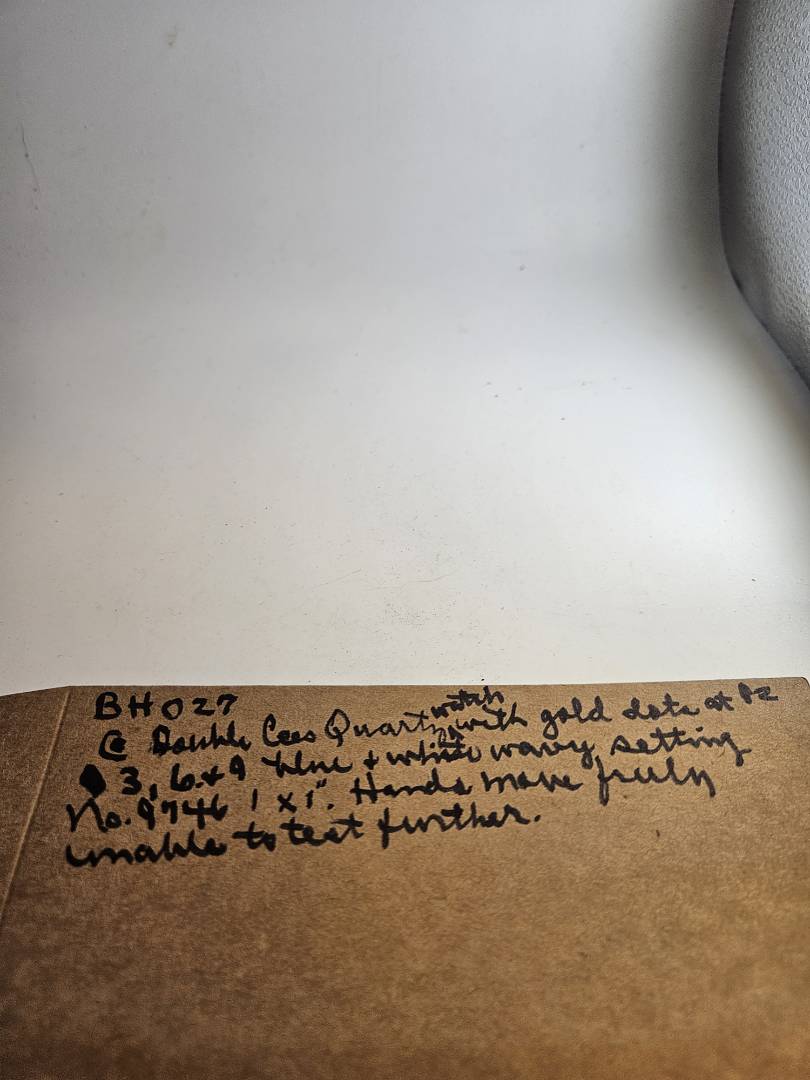 BH027
Double Cees Quartz watch with gold dots at 12
3, 6 & 9 blue + white wavy setting
No. 9746 1 x 1". Hands move freely
unable to test further.